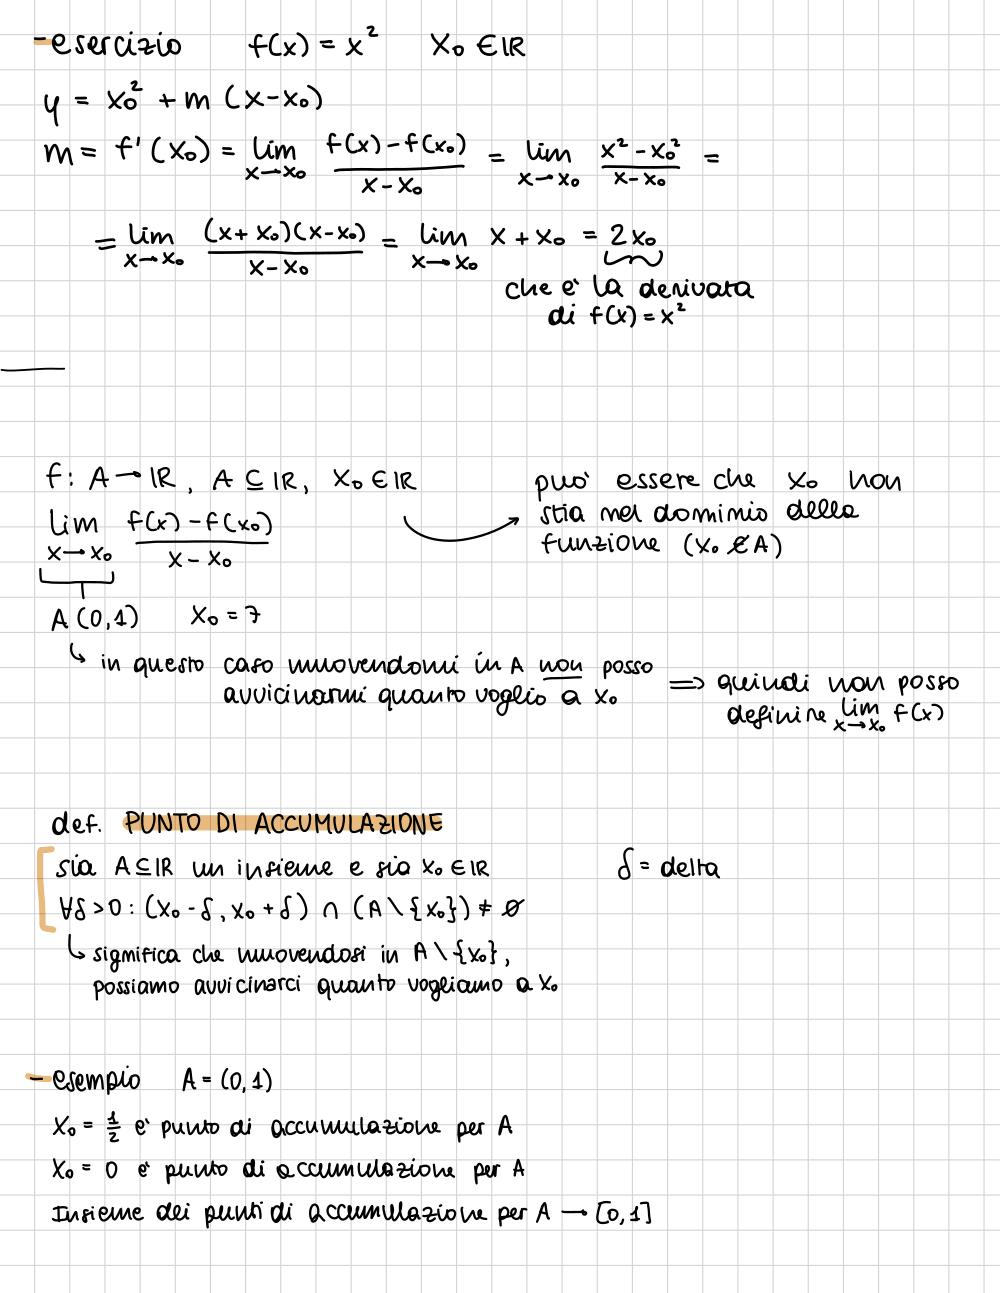 -esercizio f(x) = x² x₀ ∈ ℝ
y = x₀² + m (x-x₀)
m = f'(x₀) = lim x→x₀ (f(x)-f(x₀))/(x-x₀) = lim x→x₀ (x²-x₀²)/(x-x₀) =
= lim x→x₀ ((x+x₀)(x-x₀))/(x-x₀) = lim x→x₀ x+x₀ = 2x₀
che è la derivata
di f(x) = x²
f: A → ℝ, A ⊆ ℝ, x₀ ∈ ℝ
può essere che x₀ non
stia nel dominio della
funzione (x₀ ∉ A)
lim x→x₀ (f(x)-f(x₀))/(x-x₀)
A (0,1) x₀ = 7
↳ in questo caso muovendomi in A non posso
avvicinarmi quanto voglio a x₀
⇒ quindi non posso
definire lim x→x₀ f(x)
def. PUNTO DI ACCUMULAZIONE
sia A⊆ℝ un insieme e sia x₀ ∈ ℝ δ = delta
∀δ>0: (x₀-δ, x₀+δ) ∩ (A \ {x₀}) ≠ ∅
↳ significa che muovendosi in A \ {x₀},
possiamo avvicinarci quanto vogliamo a x₀
- esempio A = (0,1)
x₀ = 1/2 è punto di accumulazione per A
x₀ = 0 è punto di accumulazione per A
Insieme dei punti di accumulazione per A → [0,1]